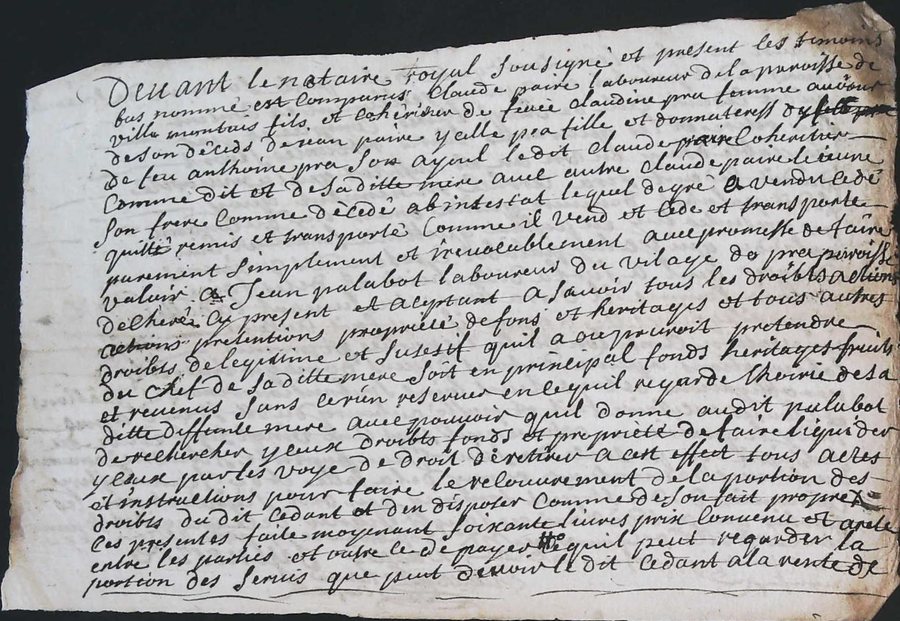 Devant le notaire royal sousigné et present les témoins
bas nommé est comparus Claude paire laboureur de la paroisse de
ville montais fils et cohéritier de feüe claudine pra femme au jour
de son décéds de jean paire y celle pra fille et donnateress
de feu anthoine pra son ayoul le dit claude paire coheritier
comme dit et de sa ditte mere avec autre claude paire le jeune
son frere comme décédé ab intestat lequel de gré a vendu cedé
quitté remis et transporté comme il vend et cede et transporte
purement simplement et irrevocablement avec promesse de faire
valoir a Jean palabot laboureur du vilage de pra paroisse
de cheré cy present et aceptant a savoir tous les droibts actions
pretentions propriété de fons et heritages et tous autres
droibts de legitime et su quil a ou pouroit pretendre
du chef de sa ditte mere soit en principal fonds heritages fruits
et revenus sans en rien reserver en ce quil regarde lhoirie de sa
ditte diffunte mere avec pouvoir quil donne au dit palabot
de rechercher yceux droibts fonds et propriété de faire liquider
yceux par les voye de droit de retirer a cest effect tous actes
et instructions pour faire le relouvrement de la portion des
droibts du dit cedant et den disposer comme de son fait propre
ces presentes faite moyenant soixante livres prix convenu et areté
entre les parties et outre ce de payer ce quil peut regarder la
portion des servis que peut devoir le dit cedant a la rente de